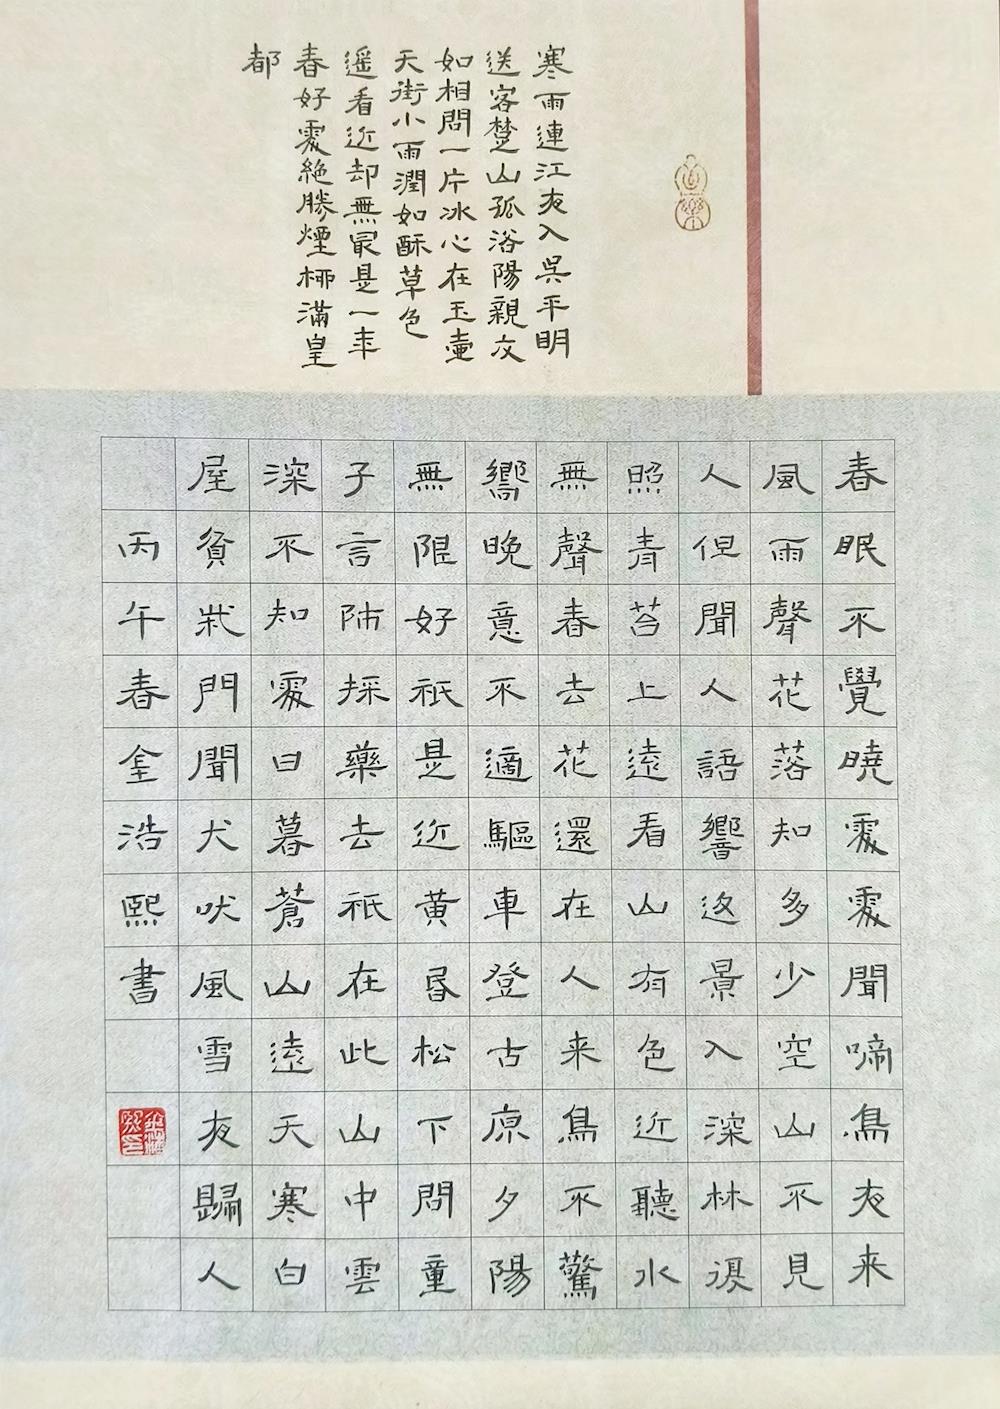 寒雨連江夜入吳平明
送客楚山孤洛陽親友
如相問一片冰心在玉壺
天街小雨潤如酥草色
遥看近却無最是一年
春好處絕勝煙柳滿皇
都
春眠不覺曉處處聞啼鳥夜来
風雨聲花落知多少空山不見
人但聞人語響返景入深林復
照青苔上遠看山有色近聽水
無聲春去花還在人来鳥不驚
嚮晚意不適驅車登古原夕陽
無限好祇是近黄昏松下問童
子言師採藥去祇在此山中雲
深不知處日暮蒼山遠天寒白
屋貧柴門聞犬吠風雪夜歸人
丙午春金浩熙書
金浩熙印